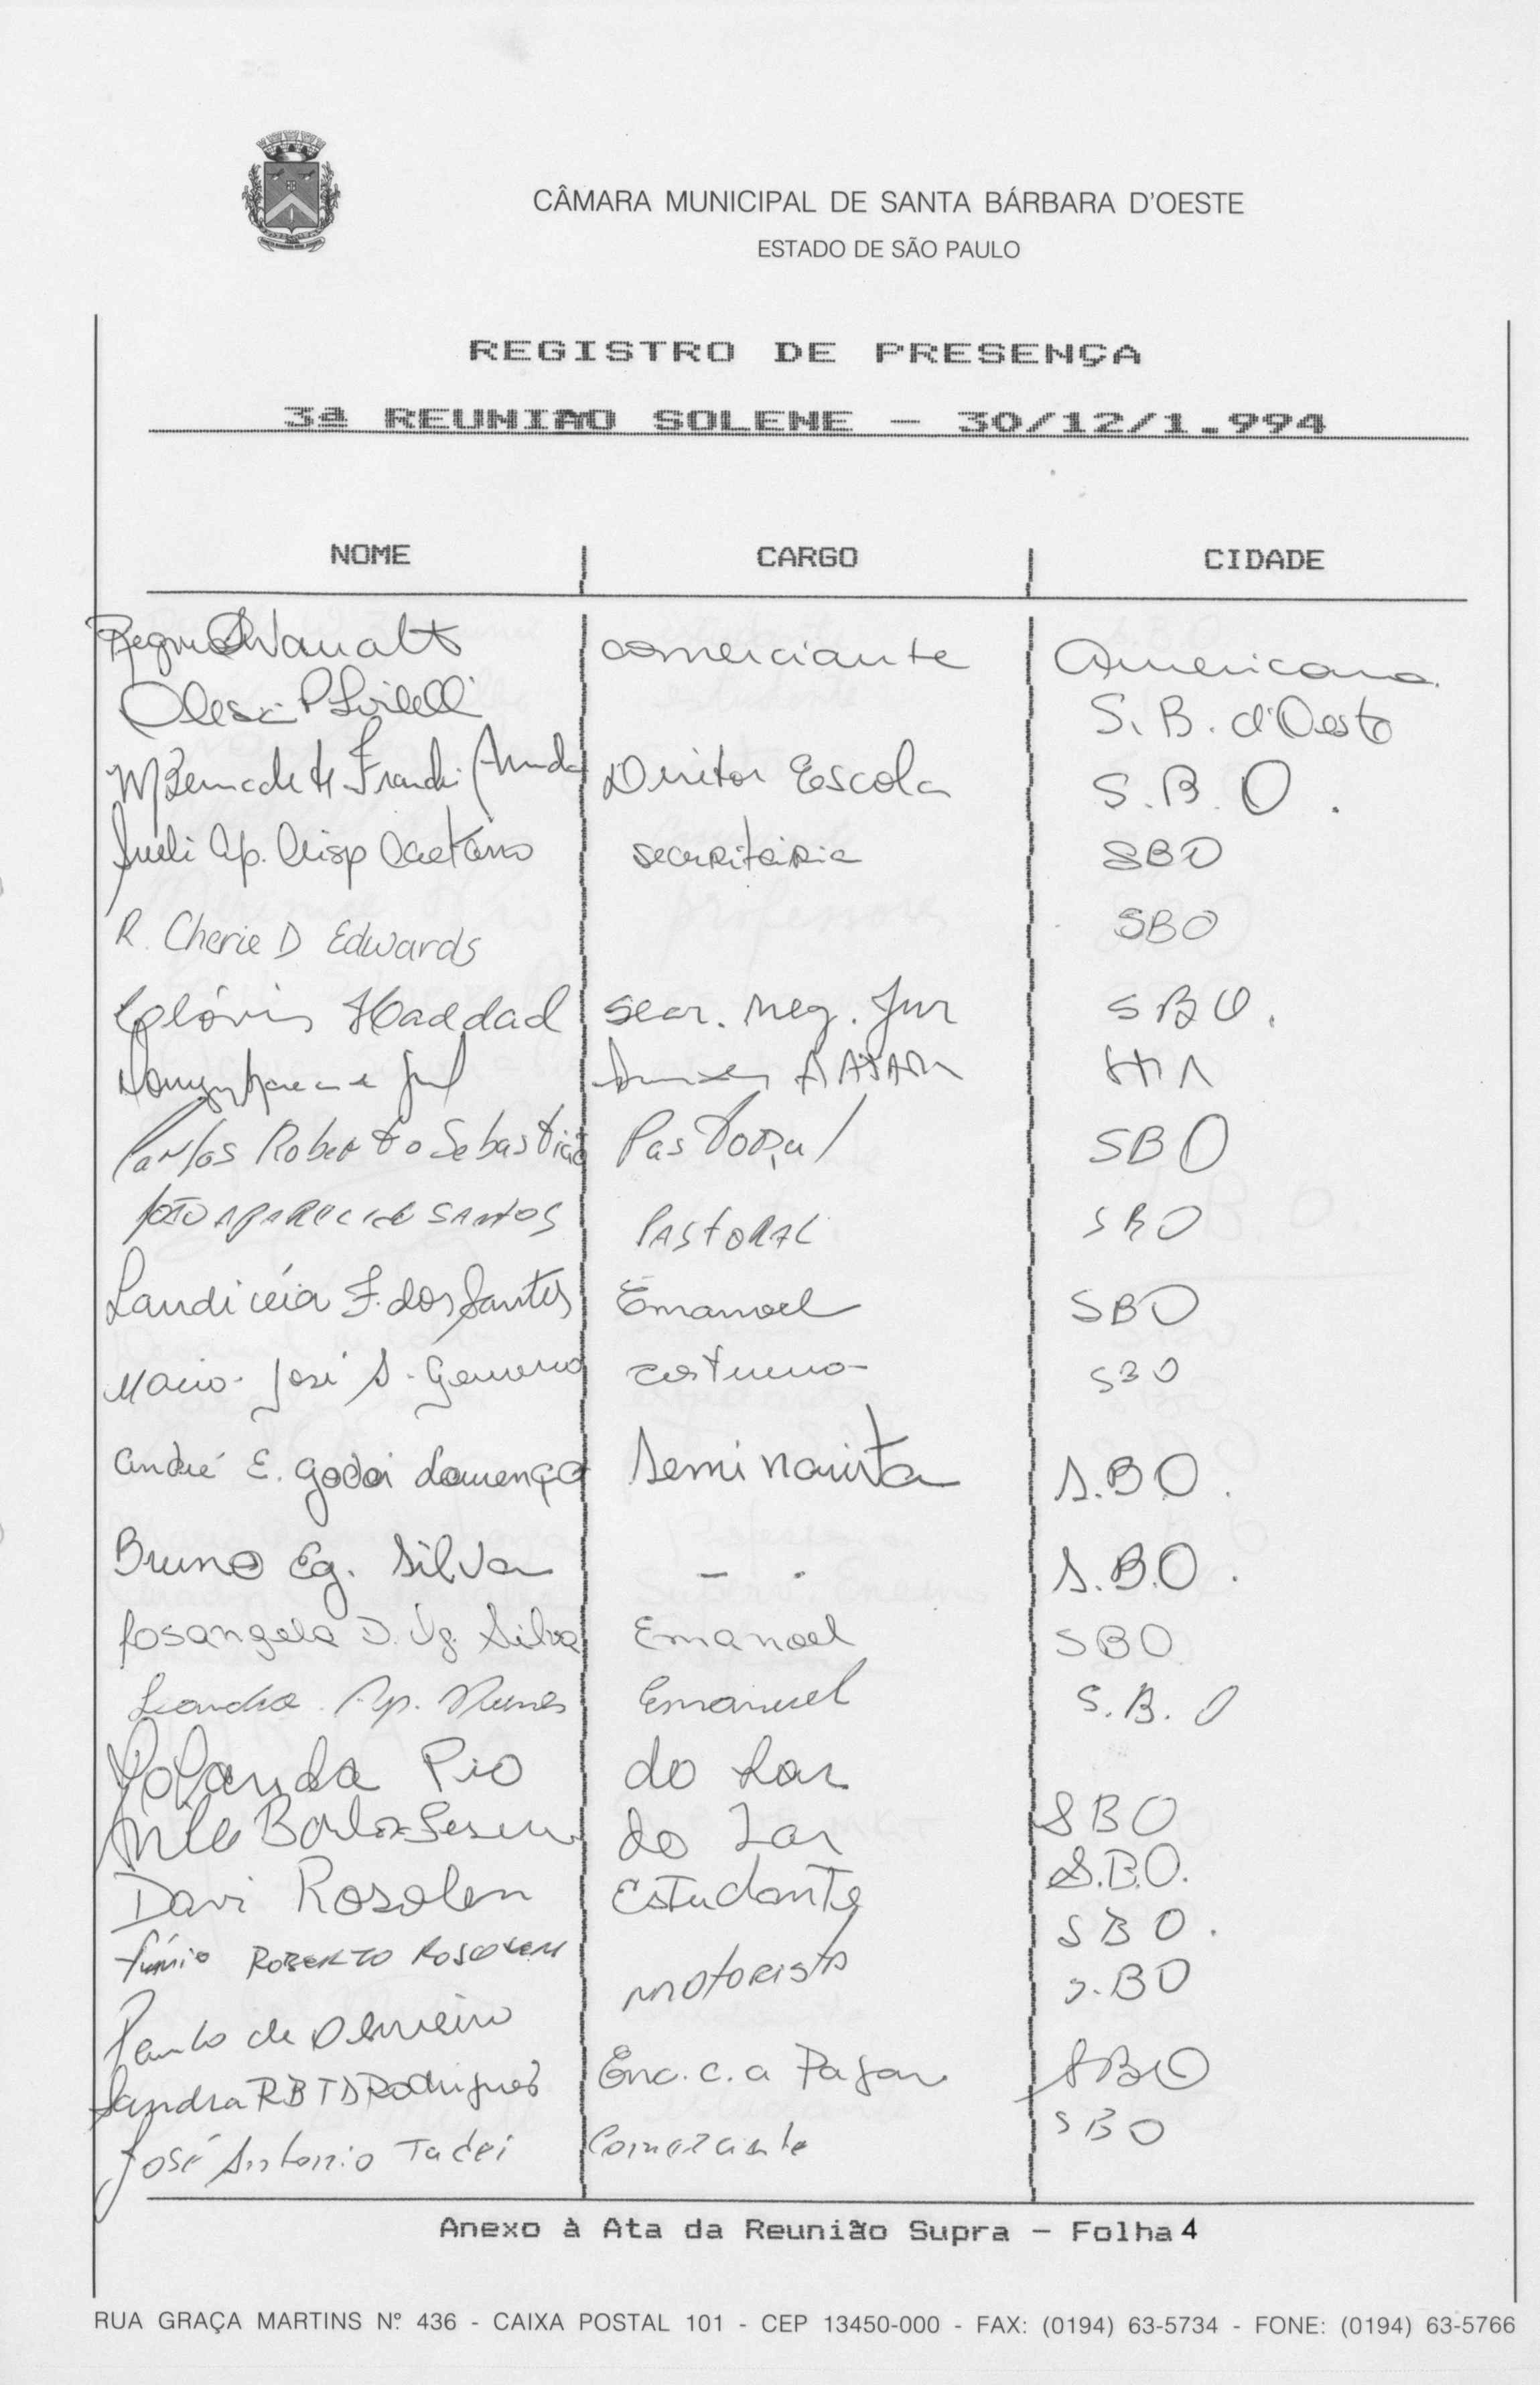 CÂMARA MUNICIPAL DE SANTA BÁRBARA D'OESTE
ESTADO DE SÃO PAULO
REGISTRO DE PRESENÇA
3ª REUNIÃO SOLENE - 30/12/1.994
NOME CARGO CIDADE
comerciante Americana.
S. B. d'Oeste
Diretor Escola S. B. O.
Sueli Ap. Crisp Caetano secretária SBO
R. Cherie D Edwards SBO
Clóvis Haddad Secr. Neg. Jur SBO.
Carlos Roberto Sebastião Pastoral SBO
João Aparecido Santos Pastoral SBO
Landicéia F. dos Santos Emanoel SBO
José S. SBO
André E. Godoi Lourenço Seminarista S.B.O.
Bruno Eg. Silva - . S.B.O.
Rosangela D. Eg. Silva Emanoel SBO
Leandra Ap. Nunes Emanuel S.B.O
Yolanda Pio do Lar
do Lar SBO
Davi Rosolen Estudante S.B.O.
Roberto SBO.
motorista S.BO
Paulo de
Sandra RBTS Rodrigues Enc. c. a Pagar SBO
José Antonio Tadei Comerciante SBO
Anexo à Ata da Reunião Supra - Folha 4
RUA GRAÇA MARTINS Nº 436 - CAIXA POSTAL 101 - CEP 13450-000 - FAX: (0194) 63-5734 - FONE: (0194) 63-5766